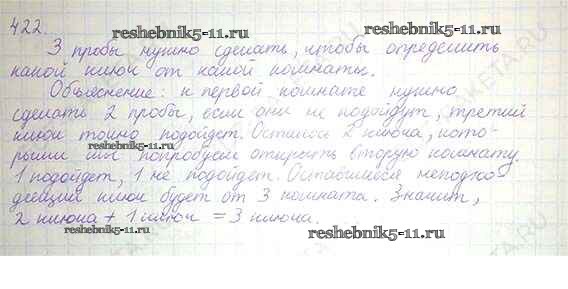 422.
reshebnik5-11.ru
reshebnik5-11.ru
3 пробы нужно сделать, чтобы определить
какой ключ от какой комнаты.
Объяснение: к первой комнате нужно
reshebnik5-11.ru
сделать 2 пробы, если они не подойдут, третий
ключ точно подойдет. Осталось 2 ключа, кото-
рыми мы попробуем открыть вторую комнату.
1 подойдет, 1 не подойдет. Оставшийся неподхо-
дящий ключ будет от 3 комнаты. Значит,
2 ключа + 1 ключ = 3 ключа.
reshebnik5-11.ru
reshebnik5-11.ru